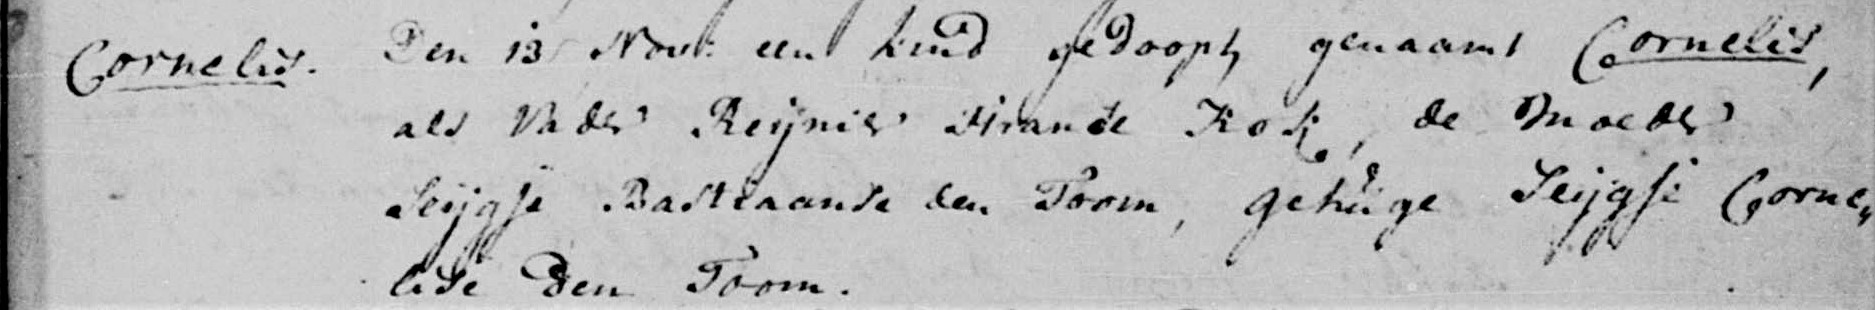 Cornelis. Den 13 Nov: een kind gedoopt, genaamt Cornelis,
als Vader Reijnier Kok, de Moeder
Seijgje Bastiaanse den Toom, getuige Seijgje Corne„
lise Den Toom.